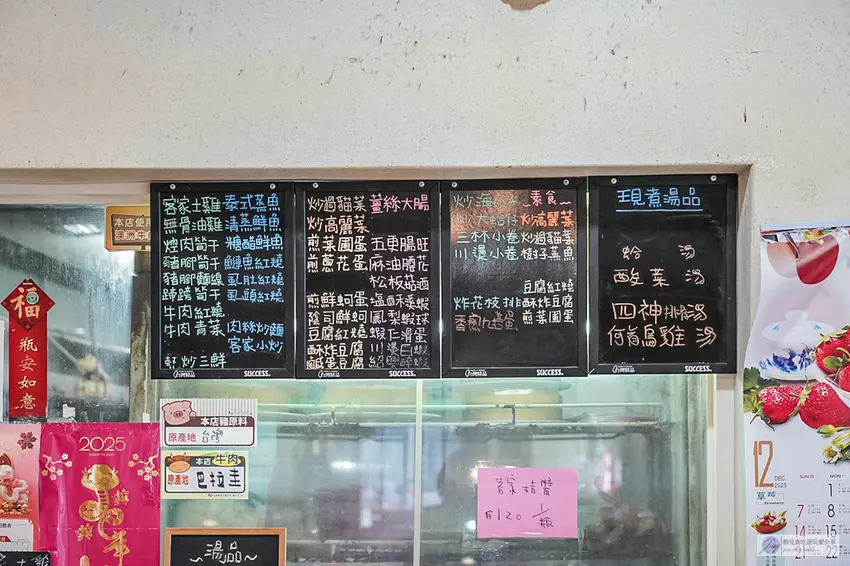 客家土雞 泰式蒸魚
無骨油雞 清蒸鮮魚
焢肉筍干 糖醋鮮魚
豬腳筍干 鰱魚紅燒
豬腳麵線 虱肚紅燒
蹄膀筍干 虱頭紅燒
牛肉紅燒
牛肉青菜 肉絲炒麵
客家小炒
炒三鮮
SUCCESS.
炒過貓菜 薑絲大腸
炒高麗菜
煎菜圃蛋 五更腸旺
煎蔥花蛋 麻油腰花
松板菇酒
煎鮮蚵蛋 鹽酥溪蝦
蔭豉鮮蚵 鳳梨蝦球
豆腐紅燒 蝦仁滑蛋
酥炸豆腐 川燙白蝦
鹹蛋豆腐
SUCCESS.
素食~
炒大蛤仔 炒高麗菜
三杯小卷 炒過貓菜
川燙小卷 樹子蒸魚
豆腐紅燒
炸花枝排 酥炸豆腐
香煎九层蛋 煎菜圃蛋
SUCCESS.
現煮湯品
蛤 湯
酸菜 湯
四神排骨湯
何首烏雞 湯
SUCCESS.
本店使用
澳洲牛
福
瓶安如意
本店豬原料
原產地 台灣
本店 牛肉
原產地 巴拉圭
2025
~湯品~
客家桔醬
$120 1/瓶
12
DEC.
2025
草莓
SUN 日
MON
1
7 8
14 15
21 22
靜兒貪吃遊玩愛分享